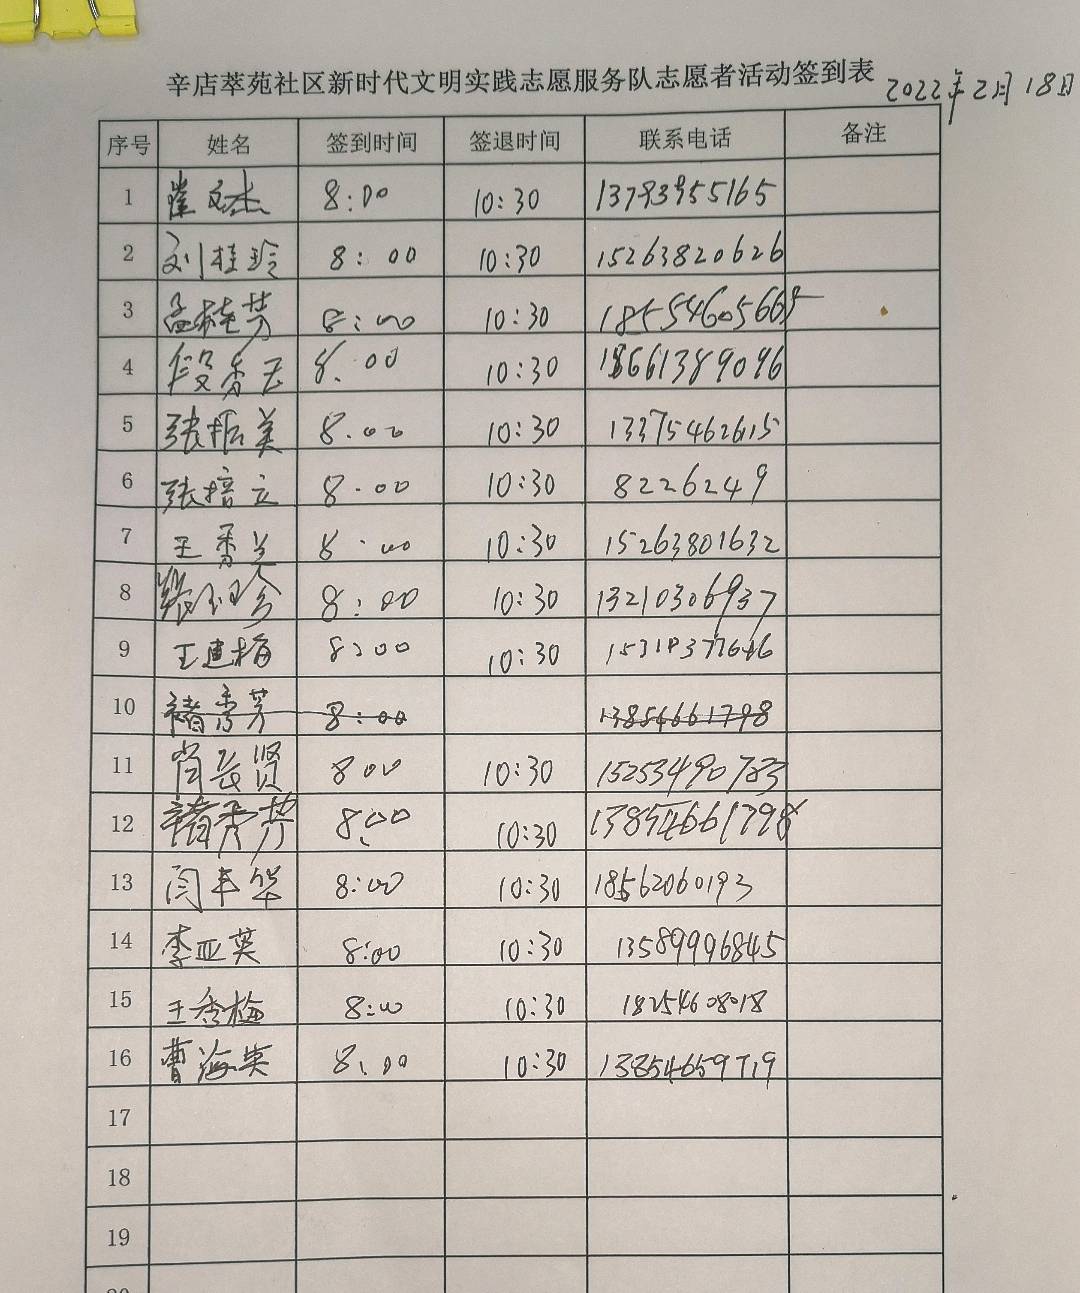 辛店萃苑社区新时代文明实践志愿服务队志愿者活动签到表 2022年2月18日
序号 姓名 签到时间 签退时间 联系电话 备注
1 崔文杰 8:00 10:30 13793955165
2 刘桂玲 8:00 10:30 15263820626
3 孟桂芳 8:00 10:30 18554605665
4 段秀云 8:00 10:30 18661389096
5 张振美 8:00 10:30 13375462615
6 张培立 8:00 10:30 8226249
7 王秀兰 8:00 10:30 15263801632
8 10:30 13210306937 8:00
9 王建梅 8:00 10:30
10 褚秀芳 8:00 13854661798
11 肖长贤 800 10:30 15253490783
12 褚秀芳 8:00 10:30 13854661798
13 闫丰华 8:00 10:30 18562060193
14 李亚英 8:00 10:30 13589996845
15 王秀梅 8:00 10:30 18254608018
16 曹海英 8:00 10:30 13854659719
17
18
19